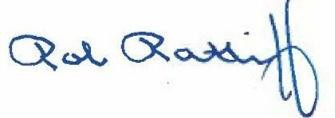 Rob Ratliff